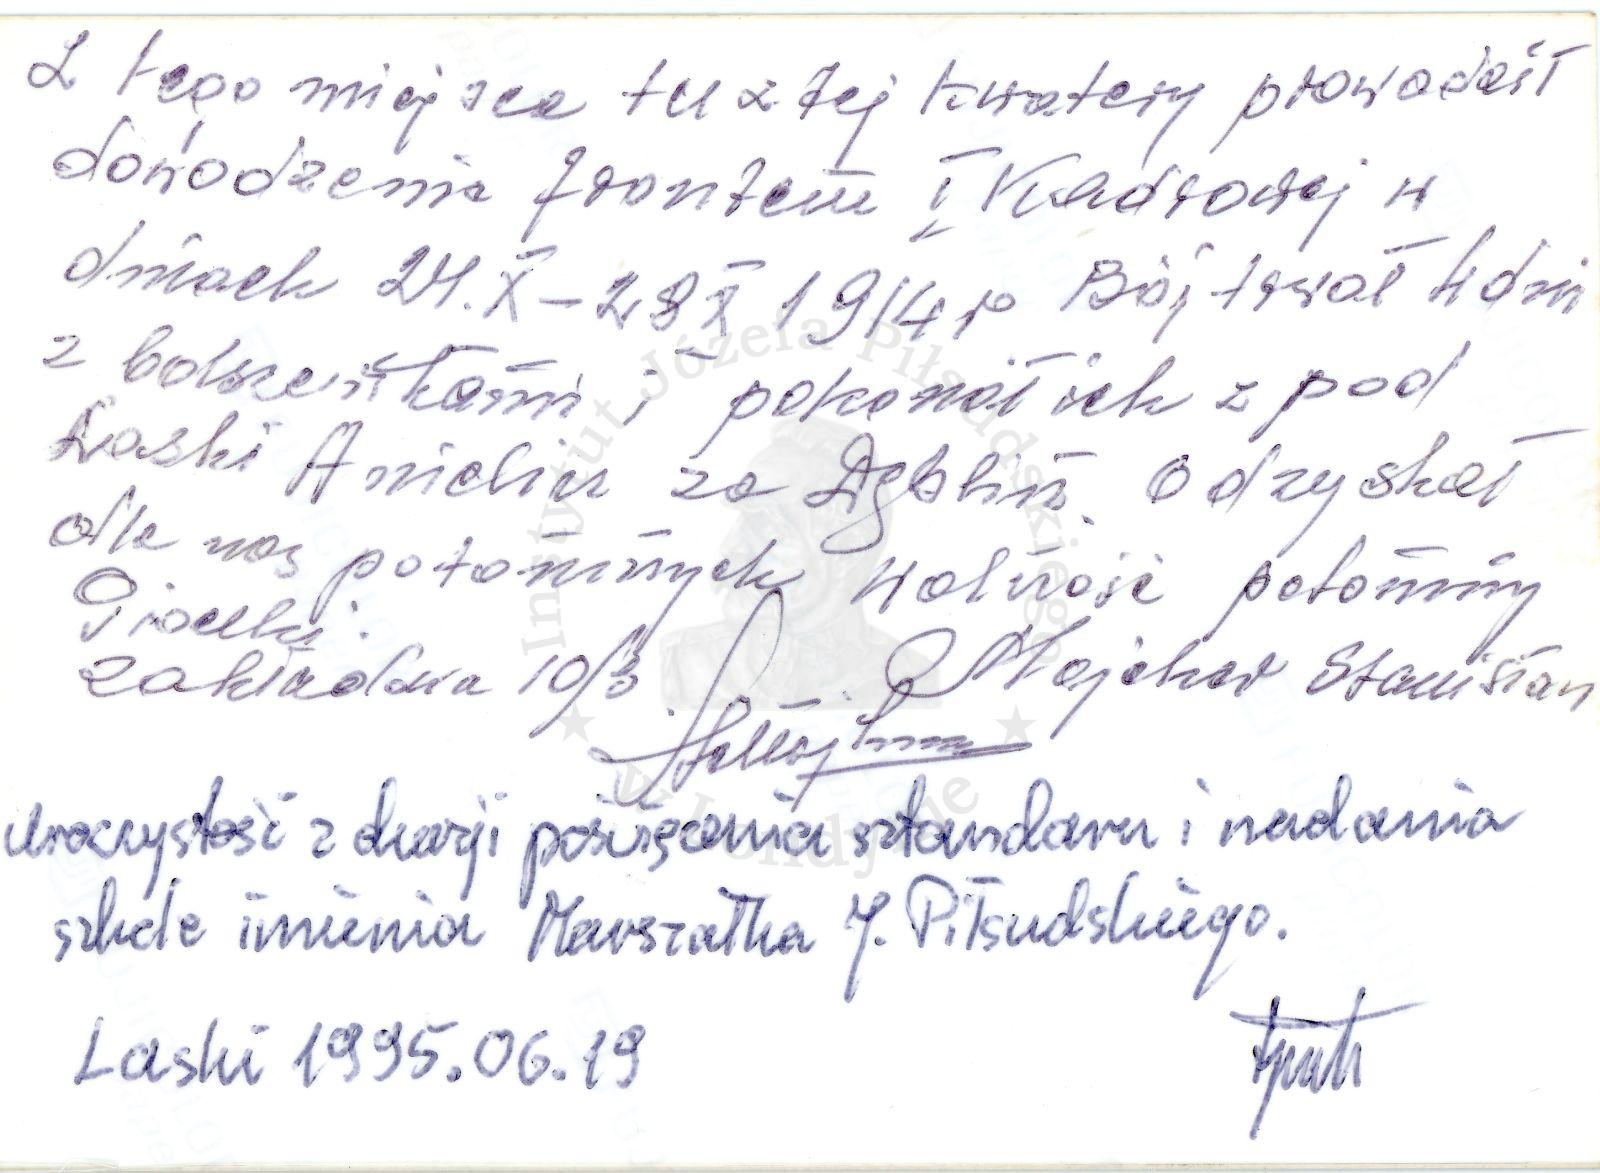 Z tego miejsca tu z tej kwatery prowadził
dowodzenia frontem I Kadrowej w
dniach 24.X – 28 X 1914 r Bój trwał 4 dni
z bolszewikami i pokonał ich z pod
Laski Anielin za Dęblin. Odzyskał
dla nas potomnych wolność potomny
zakładowa 10/3 Stanisław
Uroczystość z okazji poświęcenia sztandaru i nadania
szkole imienia Marszałka J. Piłsudskiego.
Laski 1995.06.19
Instytut Józefa Piłsudskiego
w Londynie